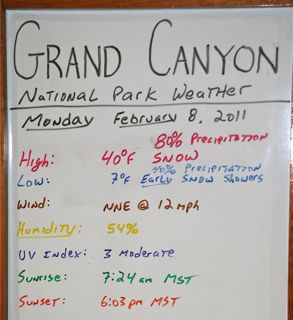 GRAND CANYON
NATIONAL PARK WEATHER
Monday February 8, 2011
80% PRECIPITATION
HIGH: 40°F SNOW
40% PRECIPITATION
LOW: 7°F EARLY SNOW SHOWERS
WIND: NNE @ 12 mph
HUMIDITY: 54%
UV INDEX: 3 MODERATE
SUNRISE: 7:24 am MST
SUNSET: 6:03 pm MST